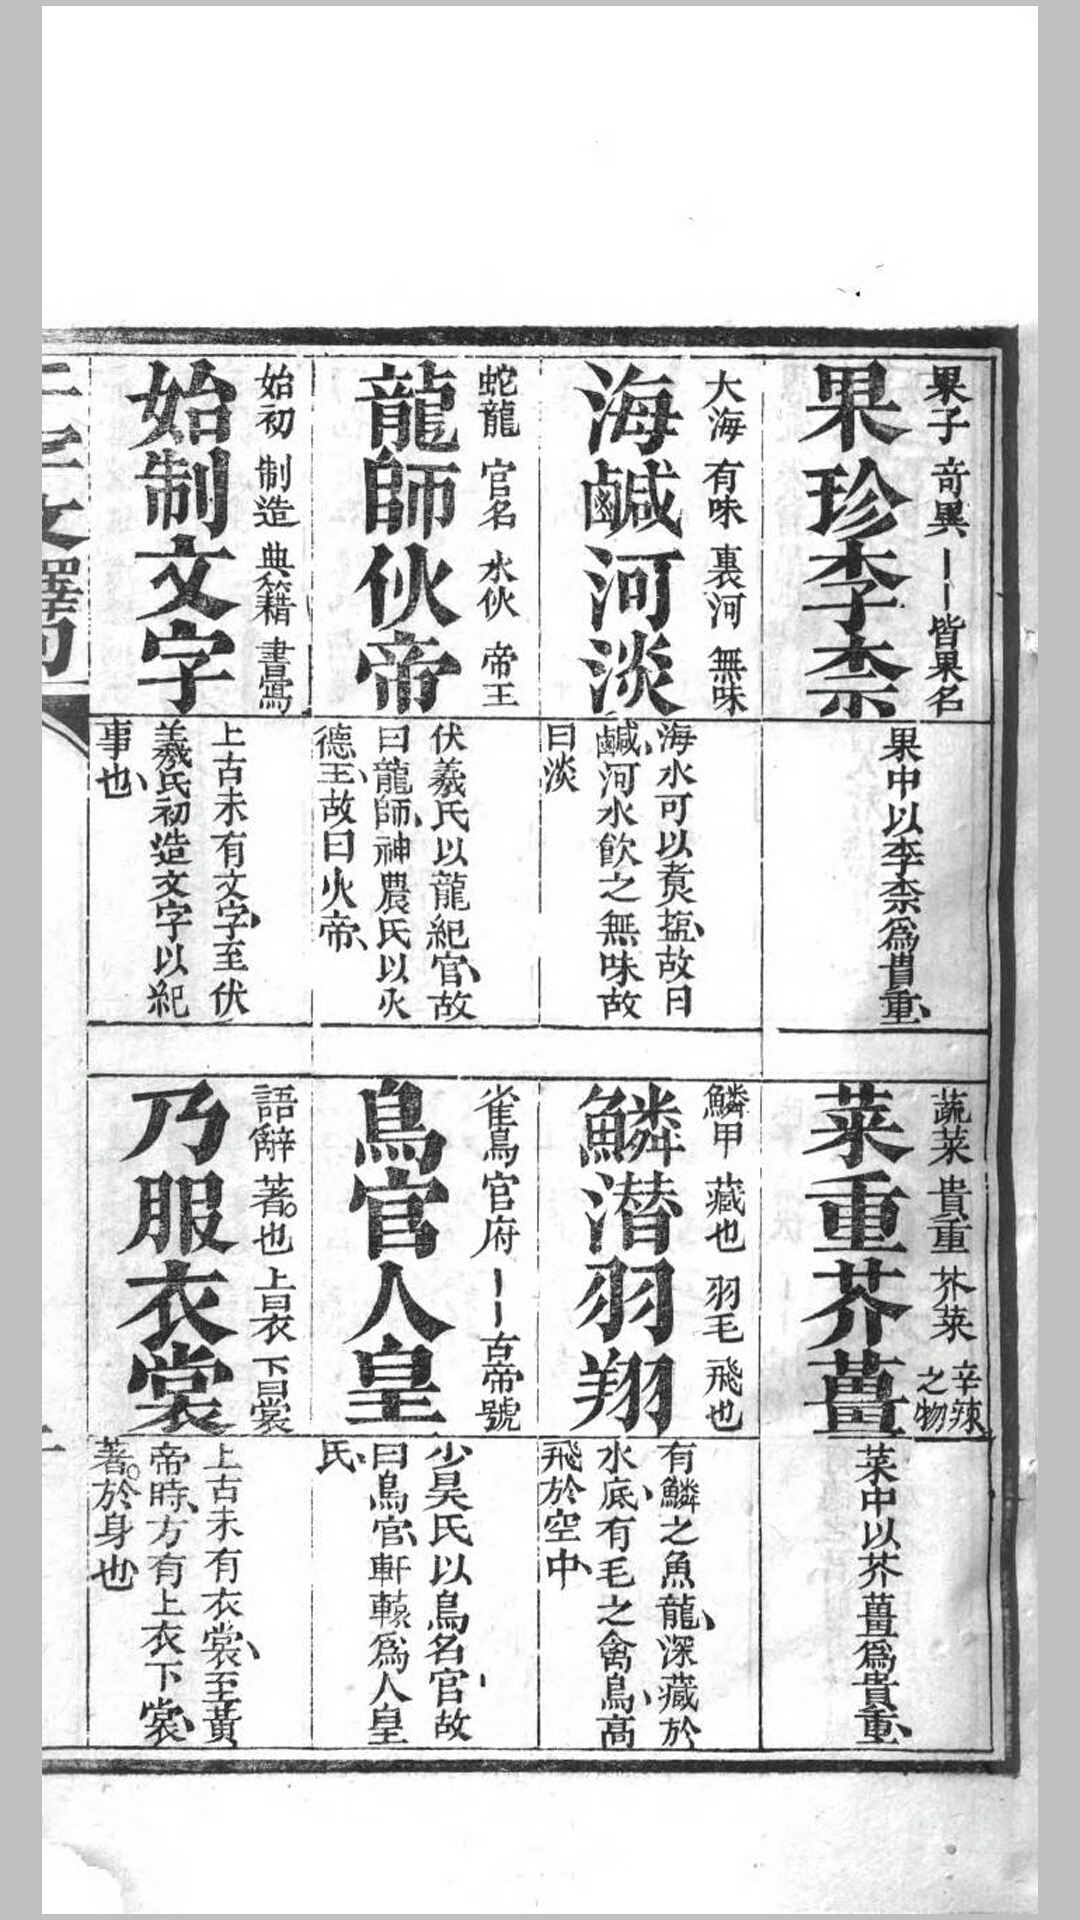 果子 奇異 丨丨皆果名
果珍李柰
果中以李柰爲貴重、
蔬菜 貴重 芥菜 辛辣之物
菜重芥薑
菜中以芥薑爲貴重、
大海 有味 裏河 無味
海鹹河淡
海水可以煑塩、故曰
鹹、河水飮之無味故
曰淡
鱗甲 藏也 羽毛 飛也
鱗潜羽翔
有鱗之魚龍、深藏於
水底、有毛之禽鳥、高
飛於空中、
蛇龍 官名 水伙 帝王
龍師伙帝
伏羲氏以龍紀官、故
曰龍師、神農氏以火
德王、故曰火帝、
雀鳥 官府 丨丨古帝號
鳥官人皇
少昊氏以鳥名官、故
曰鳥官、軒轅爲人皇
氏、
始初 制造 典籍 書寫
始制文字
上古未有文字、至伏
羲氏初造文字以紀
事也、
語辭 著也 上曰衣 下曰裳
乃服衣裳
上古未有衣裳、至黃
帝時、方有上衣下裳、
著於身也
千字文釋句